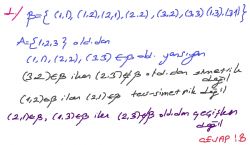 1/ β={ (1,1), (1,2), (2,1), (2,2), (3,2), (3,3) (1,3), (3,1)}
A={1,2,3} olduğundan
(1,1), (2,2), (3,3) ∈ β old. yansıyan
(3,2) ∈ β iken (2,3) ∉ β old.dan simetrik değil
(1,2) ∈ β iken (2,1) ∈ β ters-simetrik değil
(2,1) ∈ β, (1,3) ∈ β iken (2,3) ∉ β old.dan geçişken değil
CEVAP: B